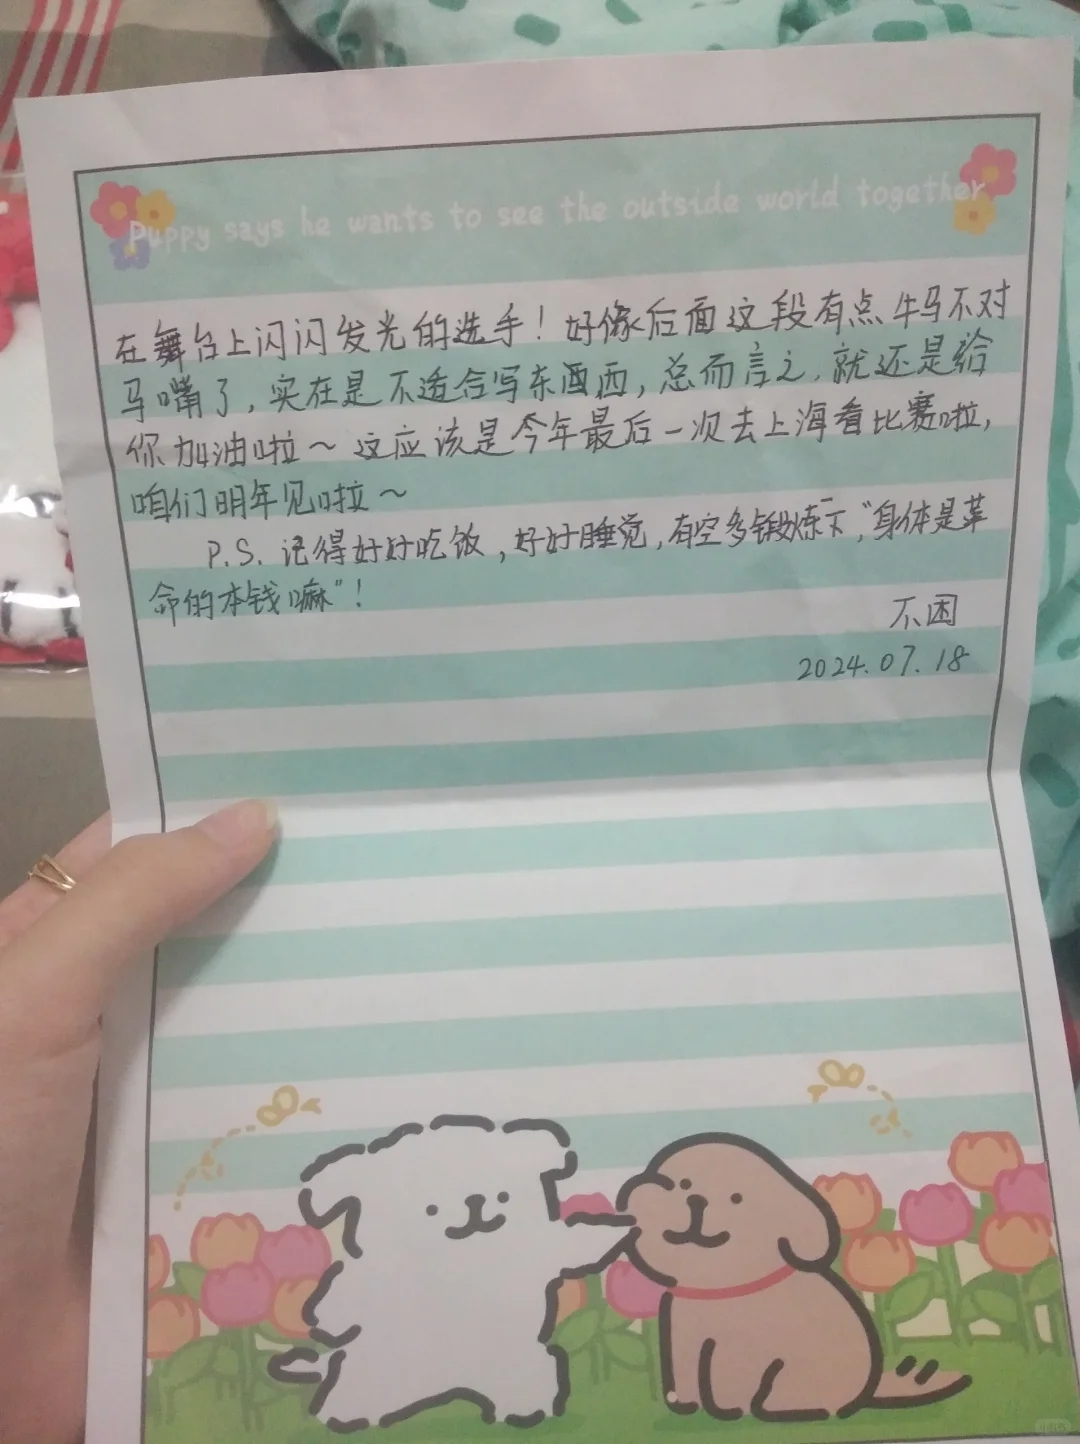 Puppy says he wants to see the outside world together
在舞台上闪闪发光的选手！好像后面这段有点牛马不对
马嘴了，实在是不适合写东西西，总而言之，就还是给
你加油啦～这应该是今年最后一次去上海看比赛啦，
咱们明年见啦～
P.S. 记得好好吃饭，好好睡觉，有空多锻炼下，“身体是革
命的本钱嘛”！
不困
2024.07.18